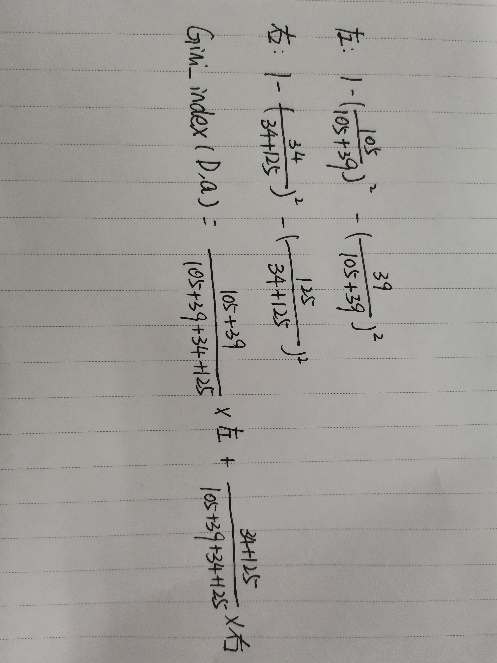 左: 1 - (105/(105+39))² - (39/(105+39))²
右: 1 - (34/(34+125))² - (125/(34+125))²
Gini_index(D,a) = (105+39)/(105+39+34+125) × 左 + (34+125)/(105+39+34+125) × 右